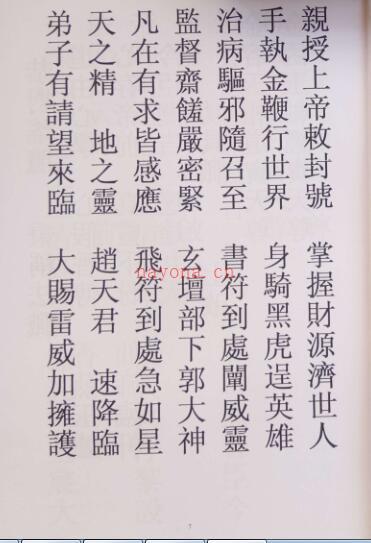 親授上帝敕封號　掌握財源濟世人
手執金鞭行世界　身騎黑虎逞英雄
治病驅邪隨召至　書符到處闡威靈
監督齋饈嚴密緊　玄壇部下郭大神
凡在有求皆感應　飛符到處急如星
天之精　地之靈　趙天君　速降臨
弟子有請望來臨　大賜雷威加擁護
nayona.cn
7